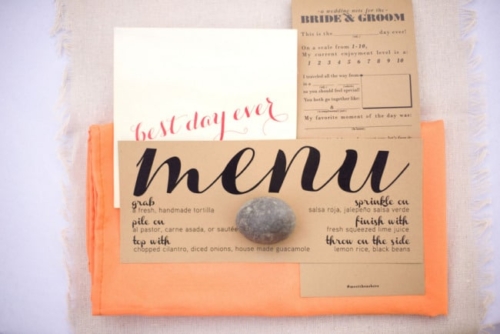 a wedding note for the
BRIDE & GROOM
This is the day ever!
On a scale from 1-10,
My current enjoyment level is a:
1 2 3 4 5 6 7 8 9 10
I traveled all the way from
so you should feel special!
You both go together like:
&
My favorite moment of the day was:
best day ever
menu
grab
a fresh, handmade tortilla
pile on
al pastor, carne asada, or
top with
chopped cilantro, diced onions, house made guacamole
sprinkle on
salsa roja, jalapeño salsa verde
finish with
fresh squeezed lime juice
throw on the side
lemon rice, black beans